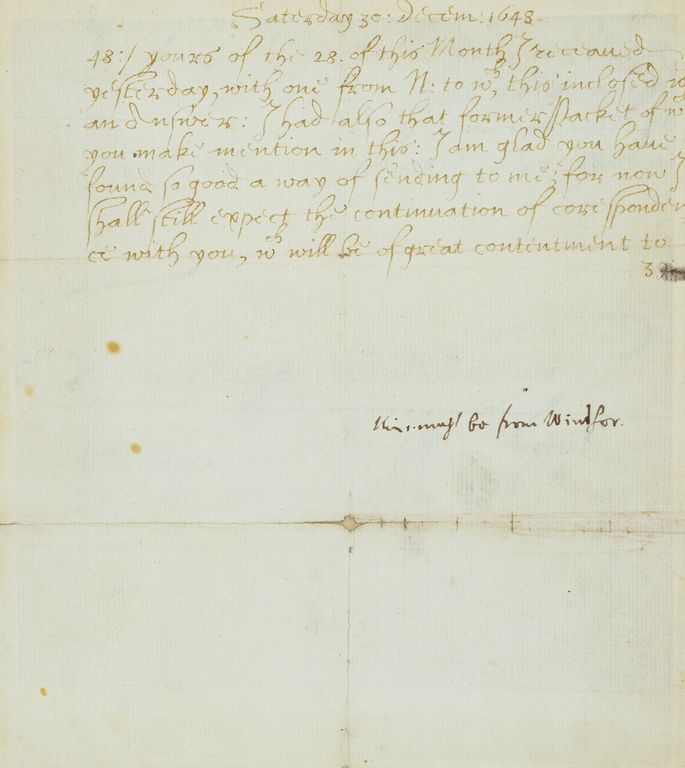 Saterday 30: Decem: 1648
48:/ yours of the 28. of this Month I receaved
yesterday, with one from N: to wch, this inclosed is
an Answer: I had also that former Packet of wch
you make mention in this: I am glad you have
found so good a way of sending to me; for now I
shall still expect the continuation of coresponden
ce with you, wch will be of great contentment to
39
this must be from Windsor.